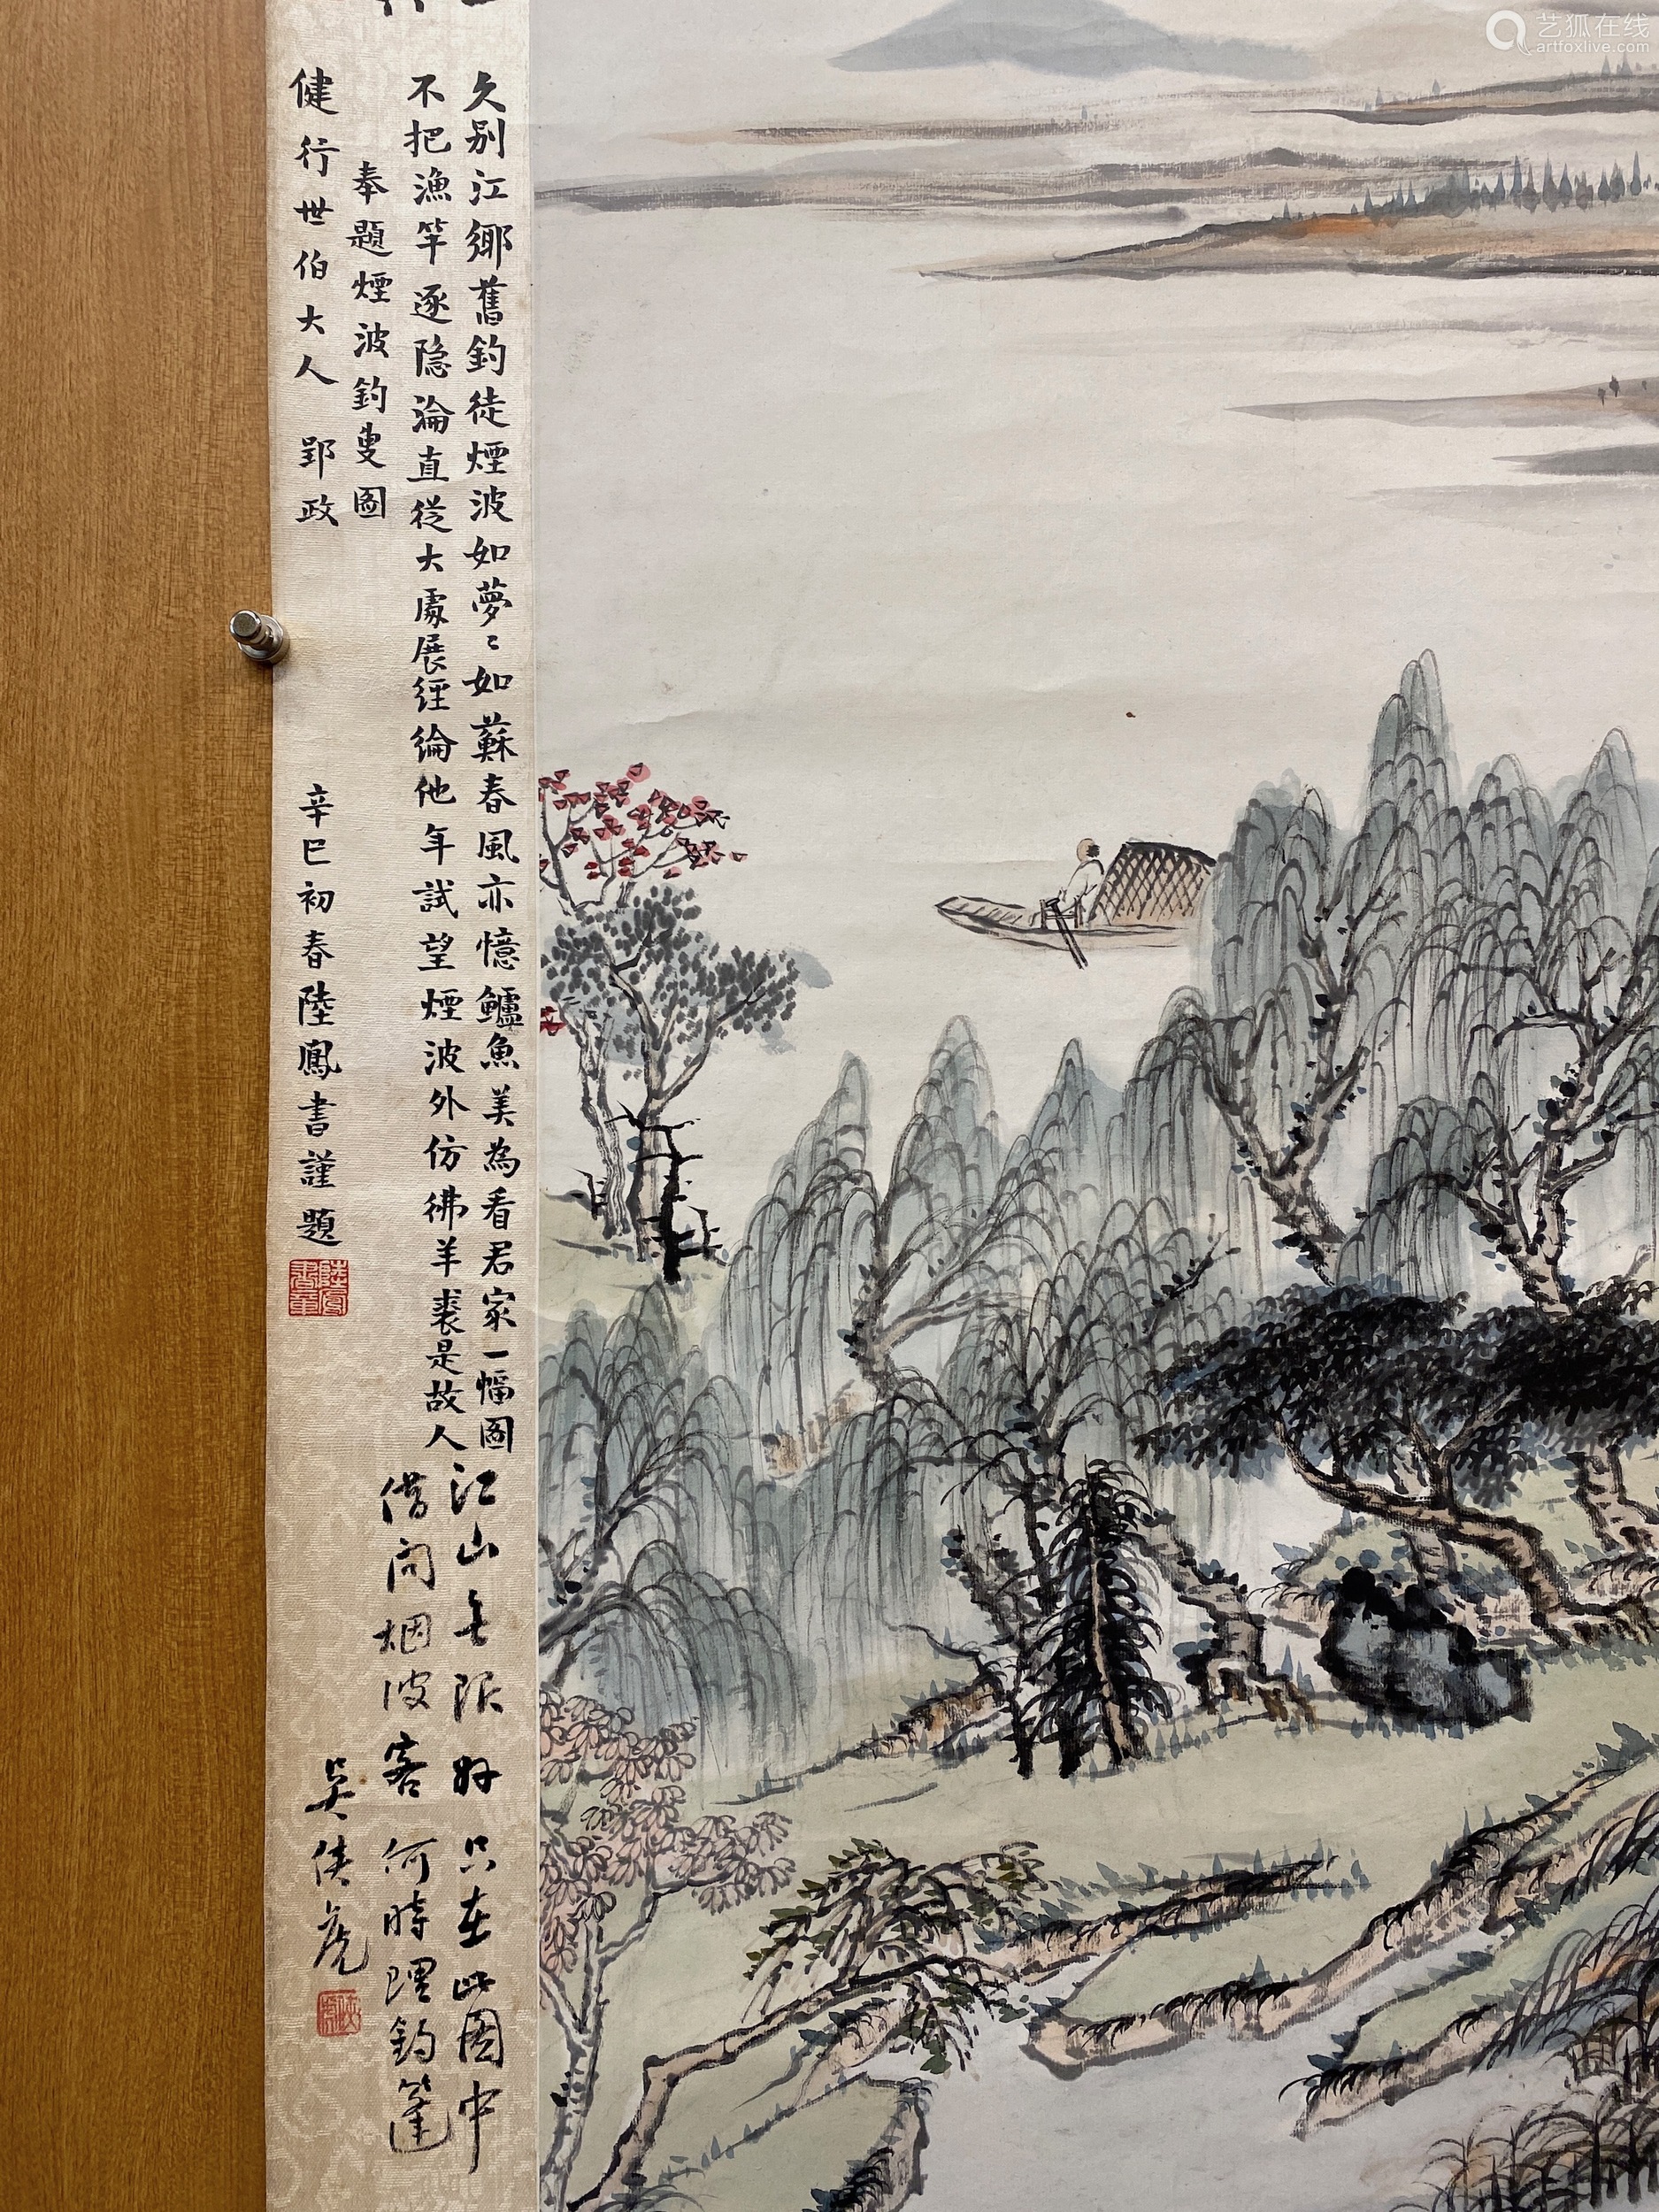 艺狐在线
artfoxlive.com
久别江鄉舊釣徒煙波如夢〻如蘇春風亦憶鱸魚美為看君家一幅圖
不把漁竿逐隐淪直從大處展經綸他年試望煙波外仿彿羊裘是故人
奉題煙波釣叟圖
健行世伯大人 郢政
辛巳初春陸鳳書謹題
江山无限好只在此圖中
借问烟波客何時理釣篷
吳俠虎